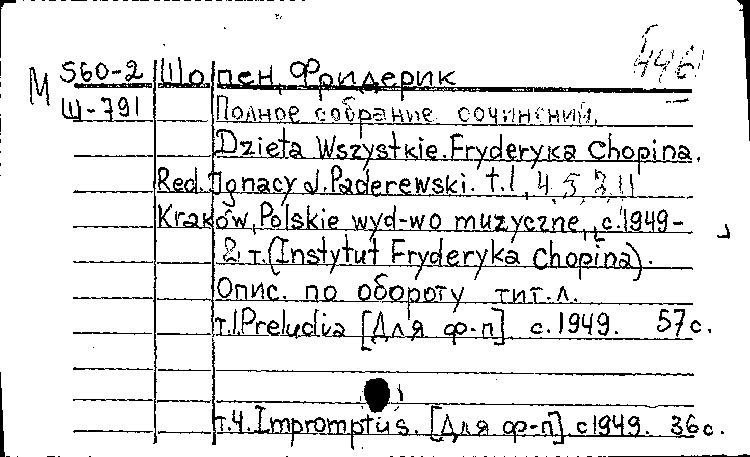 446
М 560-2 Шопен, Фридерик
Ш-791 Полное собрание сочинений.
Dzieła Wszystkie. Fryderyka Chopina.
Red. Ignacy J. Paderewski. t. I, 4, 5, 2, 11
Kraków, Polskie wyd-wo muzyczne, c. 1949-
2 т. (Instytut Fryderyka Chopina).
Опис. по обороту тит. л.
т. I. Preludia [Для ф-п] c. 1949. 57 c.
т. 4. Impromptus. [Для ф-п] c 1949. 36 c.